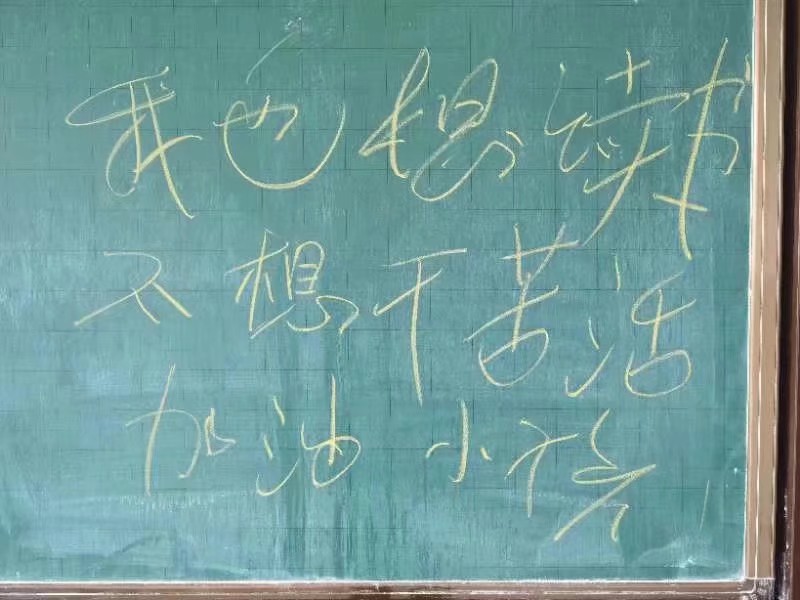 我也想读书
不想干苦活
加油小